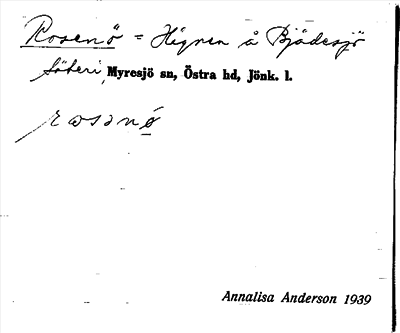 Rosenö = Hignen å Bjädesjö
Säteri, Myresjö sn, Östra hd, Jönk. l.
rosanö
Annalisa Anderson 1939